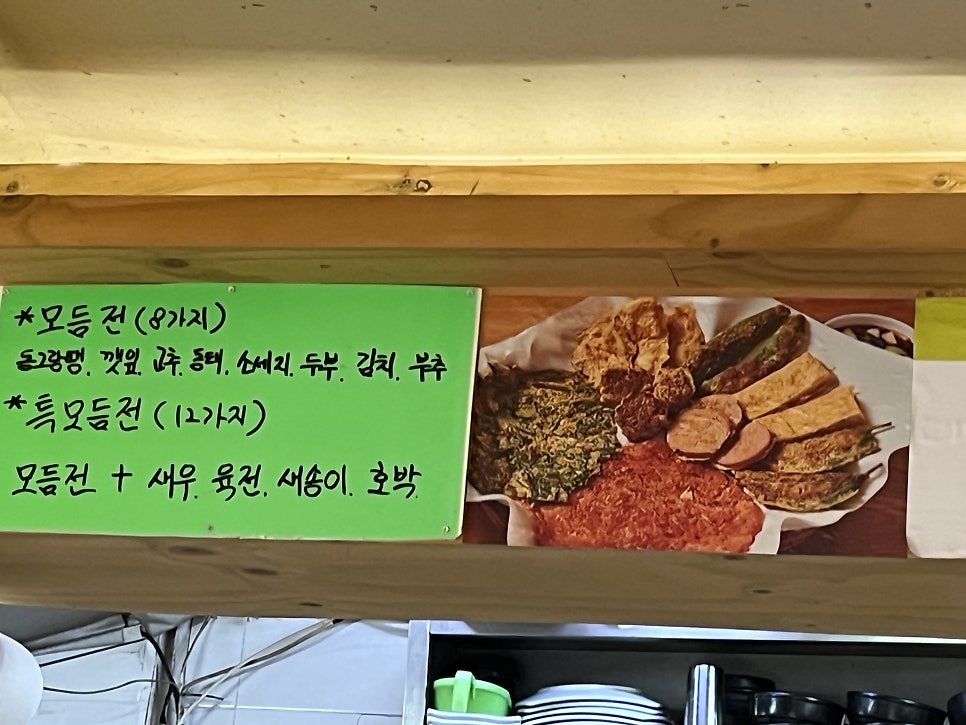 *모듬전(8가지)
동그랑땡. 깻잎. 고추. 동태. 소세지. 두부. 김치. 부추
*특모듬전(12가지)
모듬전 + 새우. 육전. 새송이. 호박.